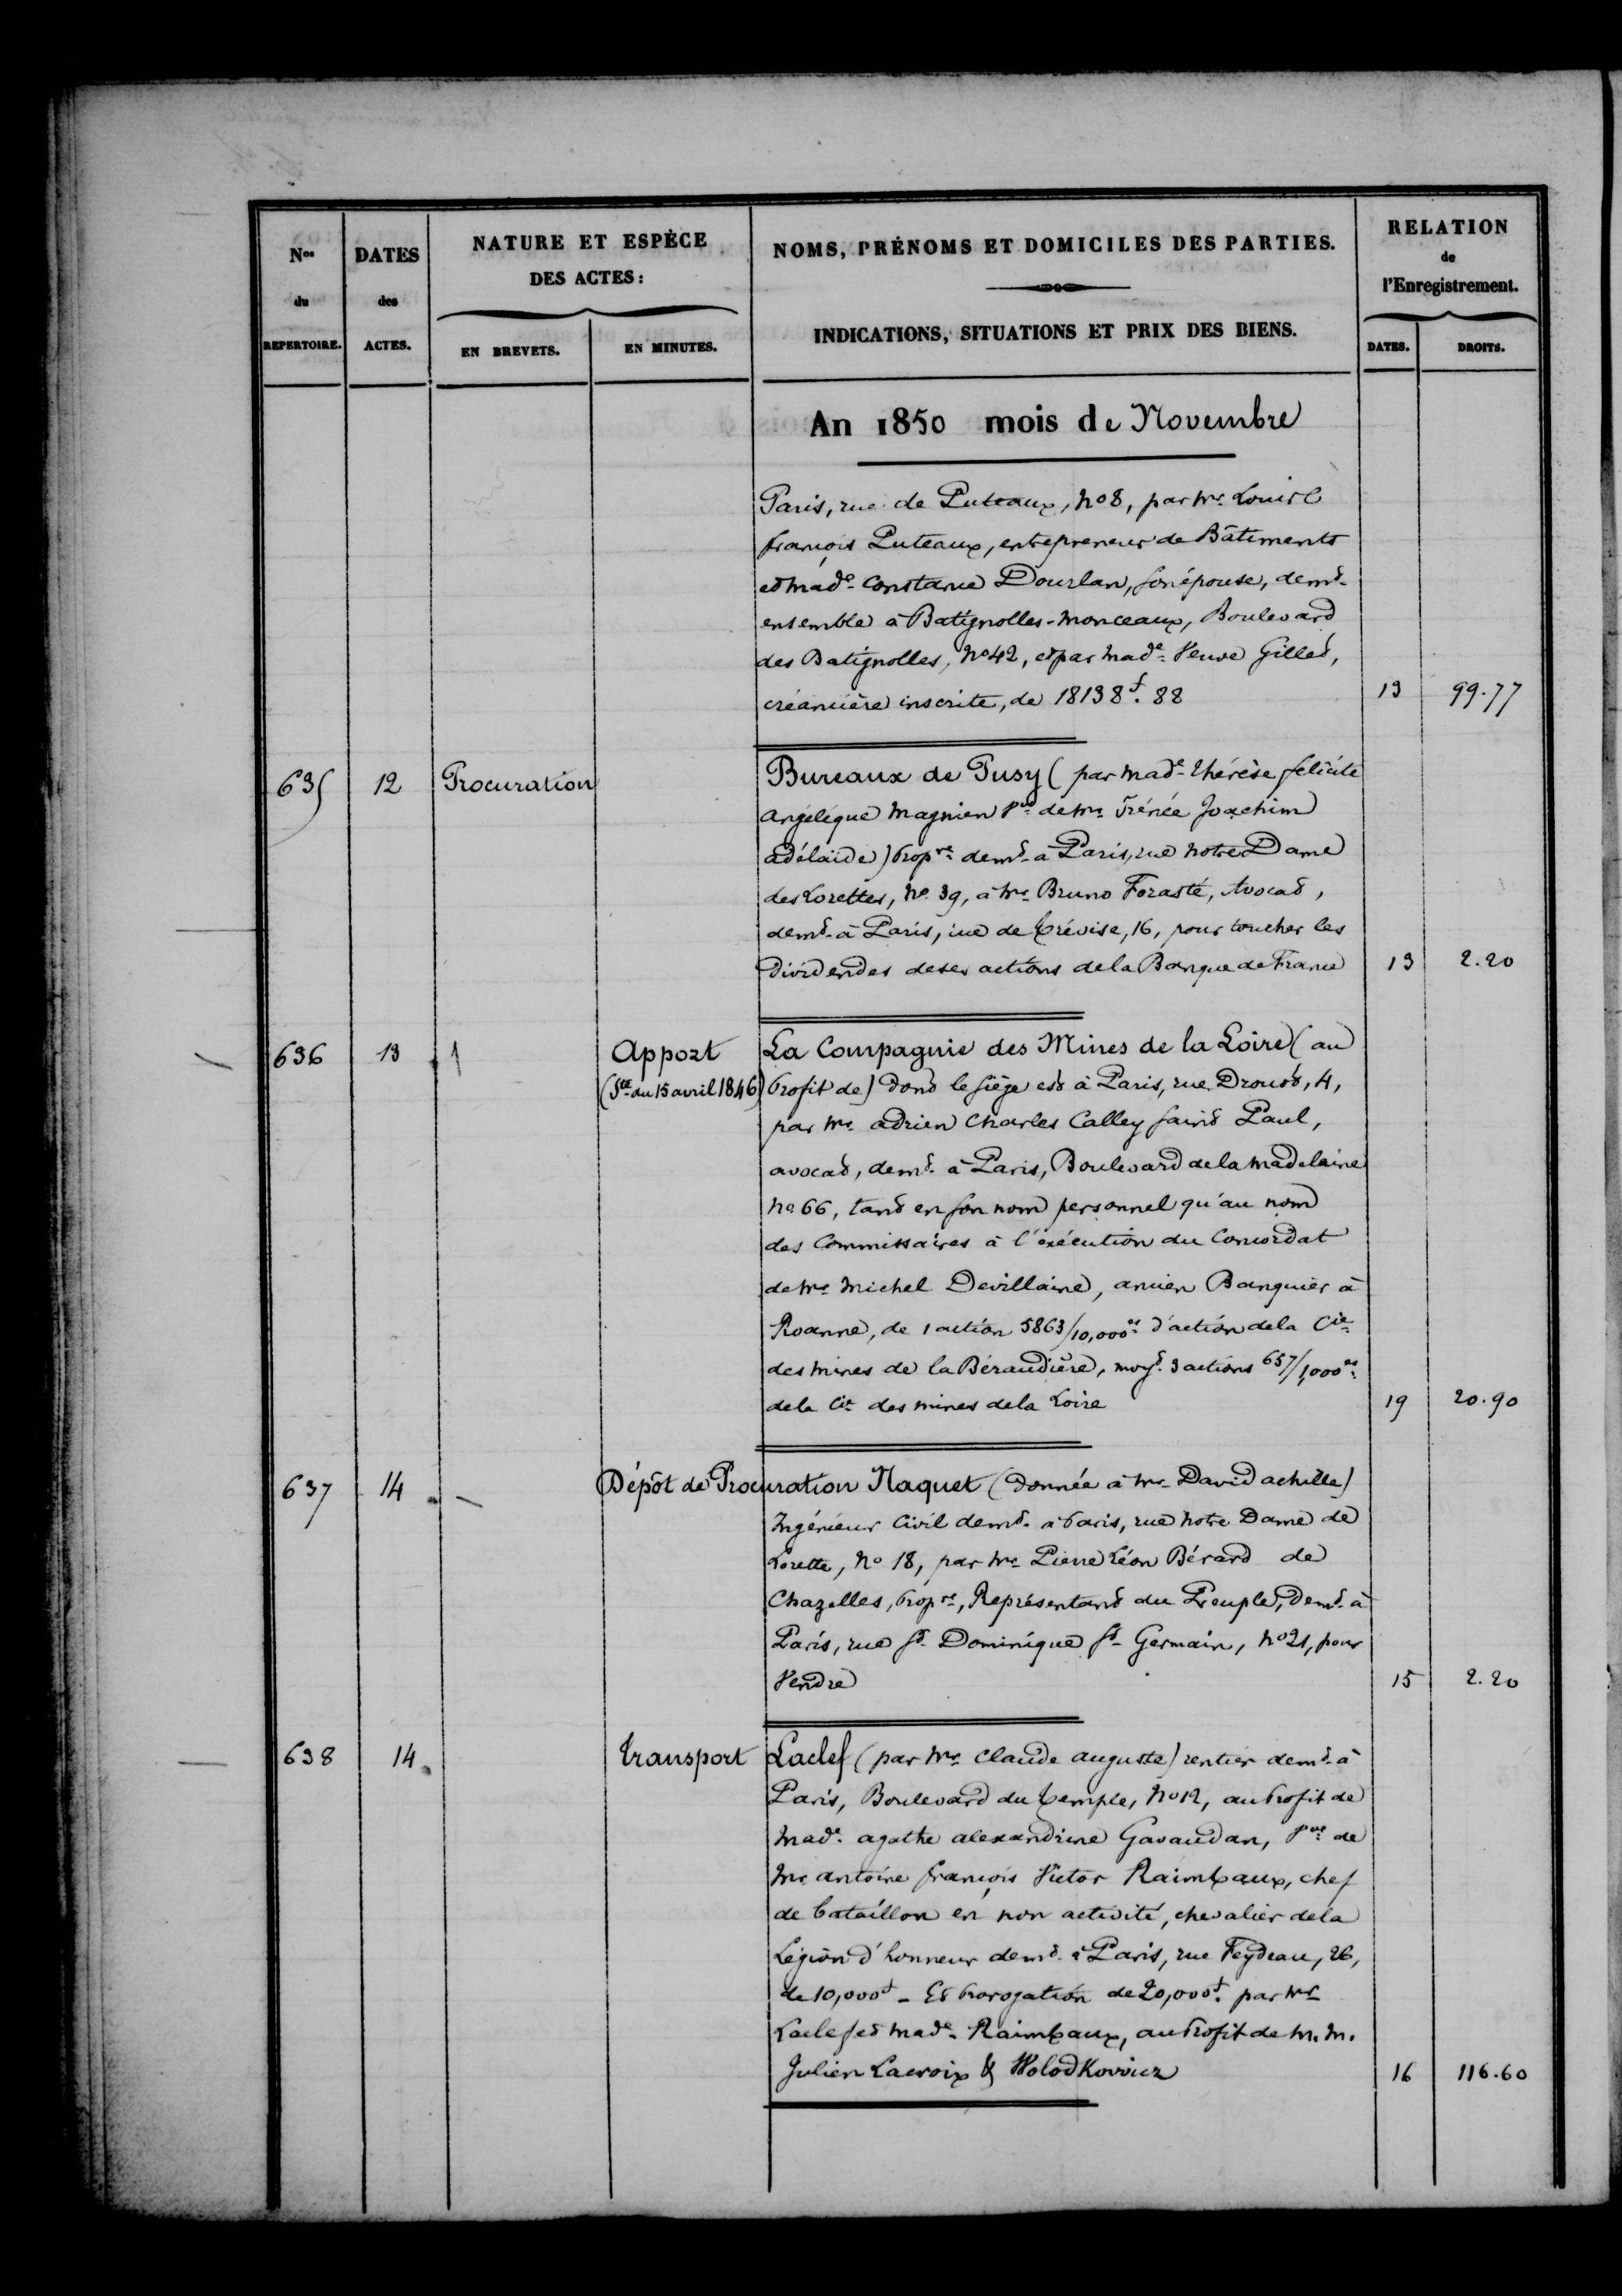 Nos
du
REPERTOIRE.
DATES
des
ACTES.
NATURE ET ESPÈCE
DES ACTES:
EN BREVETS.
EN MINUTES.
NOMS, PRÉNOMS ET DOMICILES DES PARTIES.
INDICATIONS, SITUATIONS ET PRIX DES BIENS.
RELATION
de
l'Enregistrement.
DATES.
DROITS.
An 1850 mois de Novembre
Paris, rue de Puteaux, No 8, par Mr. Louis
françois Puteaux, entrepreneur de Bâtiments
et Made. Constance Dourlan, son épouse, demt.
ensemble à Batignolles-Monceaux, Boulevard
des Batignolles, No 42, et par Made. Veuve Gilles,
créancière inscrite, de 18138f. 88 13 99.77
635 12 Procuration Bureaux de Pusy (par Made. Thérèse félicité
Angélique Magnien Vve de Mr. Irénée Joachim
adélaïde) Propre. demt. à Paris, rue Notre Dame
des Lorettes, No. 39, à Mr. Bruno Forasté, Avocat,
demt. à Paris, rue de Trévise, 16, pour toucher les
dividendes de ses actions de la Banque de France 13 2.20
636 13 1 Apport La Compagnie des Mines de la Loire (au
(Sté. du 15 avril 1846) Profit de) dont le siège est à Paris, rue Drouot, 4,
par Mr. adrien Charles Calley saint Paul,
avocat, demt. à Paris, Boulevard de la Madelaine
No. 66, tant en son nom personnel qu'au nom
des Commissaires à l'exécution du Concordat
de Mr. Michel Devillaine, ancien Banquier à
Roanne, de 1 action 5863/10,000es. d'action de la Cie.
des mines de la Béraudière, moyt. 3 actions 657/1,000es.
de la Cie. des mines de la Loire 19 20.90
637 14 Dépôt de Procuration Naquet (donnée à Mr. David achille)
Ingénieur Civil demt. à Paris, rue Notre Dame de
Lorette, No 18, par Mr. Pierre Léon Bérard de
Chazelles, Propre., Représentant du Peuple, demt. à
Paris, rue St. Dominique St. Germain, No 21, pour
Vendre 15 2.20
638 14. Transport Laclef (par Mr. Claude auguste) rentier demt. à
Paris, Boulevard du Temple, No 12, au Profit de
Made. agathe alexandrine Gavaudan, Vve. de
Mr. antoine françois Victor Raimbaux, chef
de bataillon en non activité, chevalier de la
Légion d'honneur demt. à Paris, rue Feydeau, 26,
de 10,000f - Et Prorogation de 20,000f. par Mr.
Laclef et Made. Raimbaux, au Profit de M. M.
Julien Lacroix & Holodkowicz 16 116.60